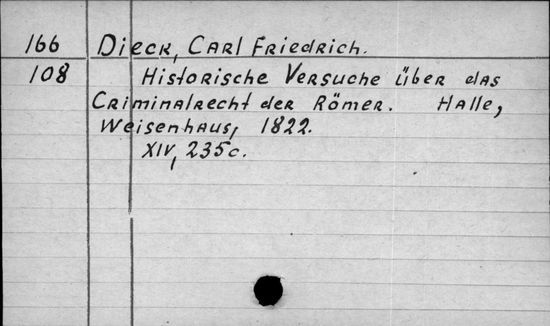 166 Dieck, Carl Friedrich.
108 Historische Versuche über das
Criminalrecht der Römer. Halle,
Weisenhaus, 1822.
XIV, 235c.